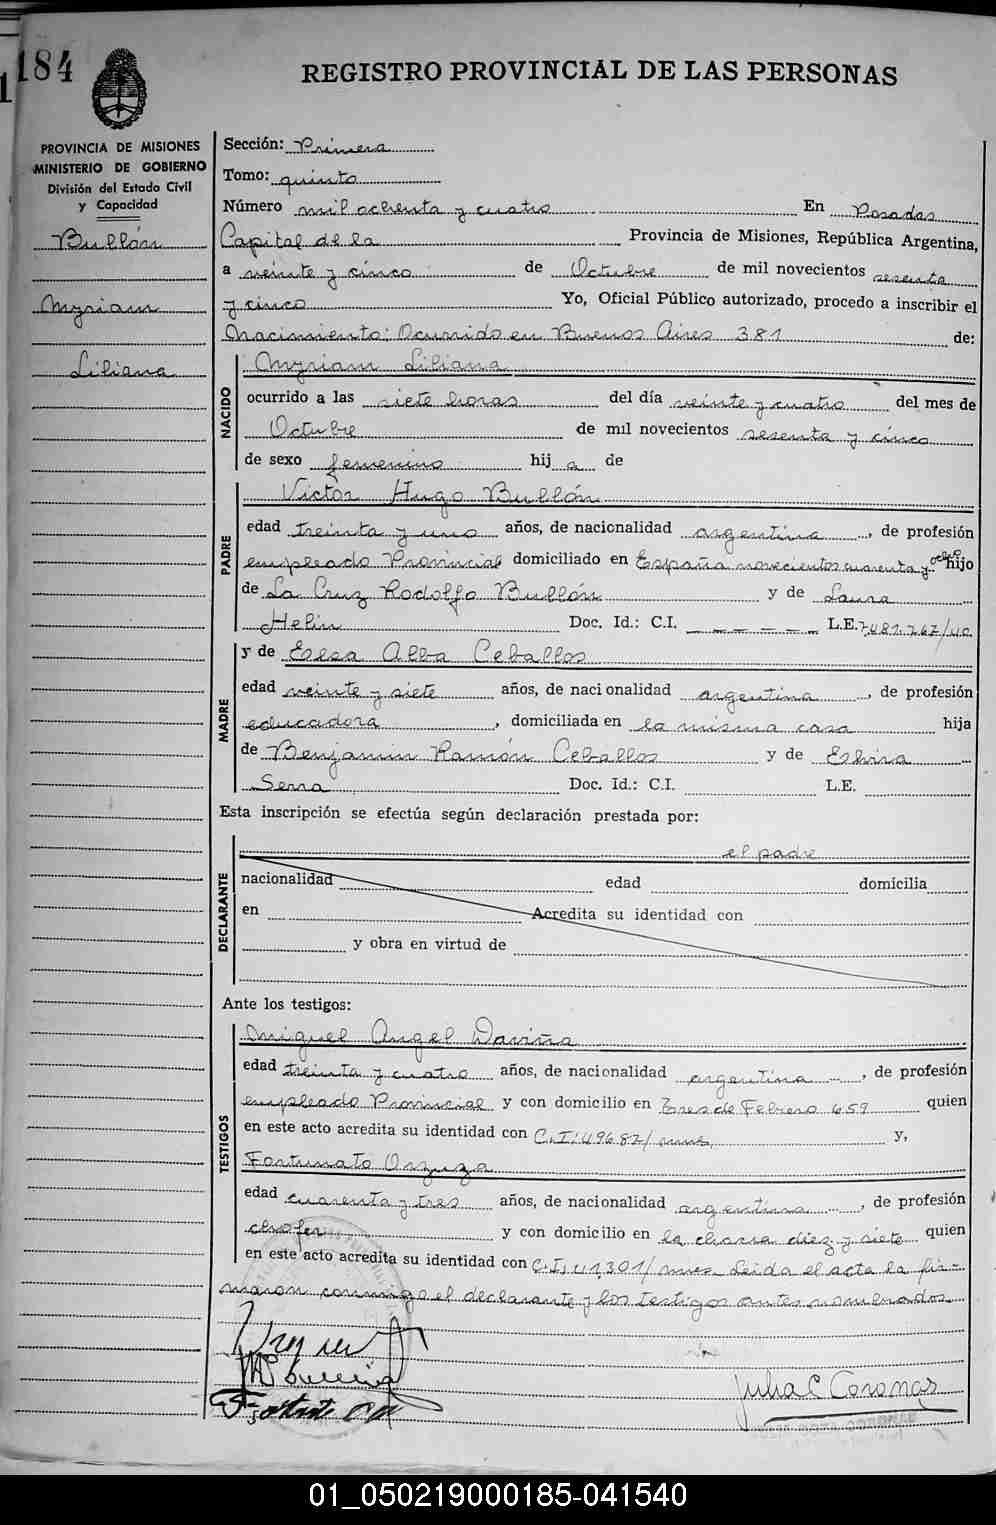 184
REGISTRO PROVINCIAL DE LAS PERSONAS
PROVINCIA DE MISIONES
MINISTERIO DE GOBIERNO
División del Estado Civil
y Capacidad
Bullón
Myriam
Liliana
Sección: Primera
Tomo: quinto
Número mil ochenta y cuatro En Posadas
Capital de la Provincia de Misiones, República Argentina,
a veinte y cinco de Octubre de mil novecientos sesenta
y cinco Yo, Oficial Público autorizado, procedo a inscribir el
Nacimiento: Ocurrido en Buenos Aires 381 de:
NACIDO
Myriam Liliana
ocurrido a las siete horas del día veinte y cuatro del mes de
Octubre de mil novecientos sesenta y cinco
de sexo femenino hij a de
PADRE
Victor Hugo Bullón
edad treinta y uno años, de nacionalidad argentina, de profesión
empleado Provincial domiciliado en España novecientos cuarenta y ocho hijo
de La Cruz Rodolfo Bullón y de Laura
Helin Doc. Id.: C.I. — — — — — L.E. 7.481.767/40
MADRE
y de Elsa Alba Ceballos
edad veinte y siete años, de nacionalidad argentina, de profesión
educadora, domiciliada en la misma casa hija
de Benjamin Ramón Ceballos y de Elvira
Serra Doc. Id.: C.I. L.E.
Esta inscripción se efectúa según declaración prestada por:
DECLARANTE
el padre
nacionalidad edad domicilia
en Acredita su identidad con
y obra en virtud de
Ante los testigos:
TESTIGOS
Miguel Angel Daviña
edad treinta y cuatro años, de nacionalidad argentina, de profesión
empleado Provincial y con domicilio en Tres de Febrero 659 quien
en este acto acredita su identidad con C.I: 49687/ mnes. y,
Fortunato Orzuza
edad cuarenta y tres años, de nacionalidad argentina, de profesión
chofer y con domicilio en la chacra diez y siete quien
en este acto acredita su identidad con C.I. 41,301/ mnes. Leida el acta la fir-
maron conmigo el declarante y los testigos antes nombrados.
Julia C Coronas
01_050219000185-041540